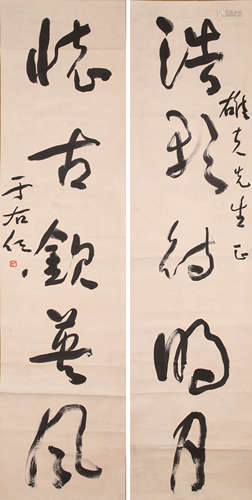 浩歌待明月
雄克先生正
懷古欽英風
于右任